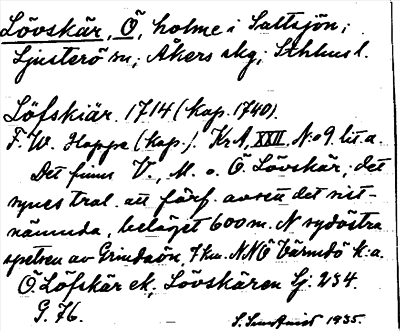 Lövskär, Ö, holme i Saltsjön;
Ljusterö sn; Åkers skg; Sthlms l.
Löfskiär. 1714 (kop. 1740).
F. W. Hoppe (kop.). KrA, XXII. N:o 9. lit. a.
Det finns V., M. o. Ö. Lövskär; det
synes tral. att förf. avsett det sist-
nämnda, beläget 600 m. N sydöstra
spetsen av Grindaön, 7 km. NNÖ Värmdö k:a.
Ö. Löfskär ek, Lövskären Gj. 234.
G. 76.
1935.